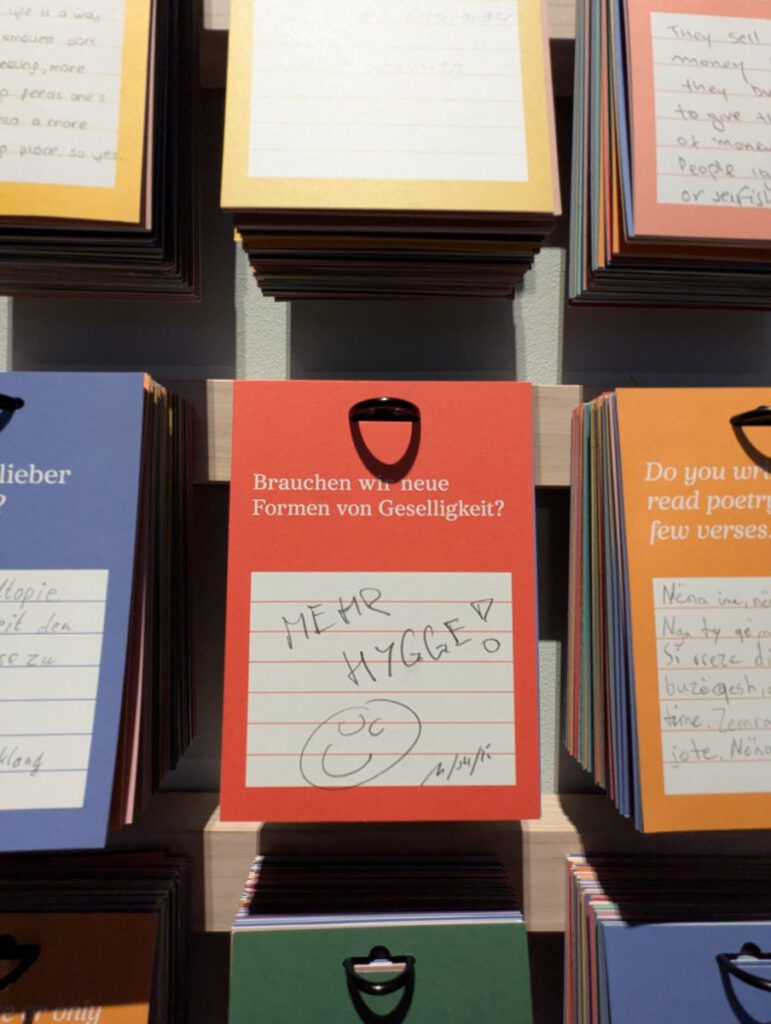 Life is a way
smallest part
ealing, more
p feeds one's
into a more
p place. so yes.
They sell
money
they
to give th
of money
People ig
or selfish
lieber
?
Utopie.
eit den
se zu
klang
Brauchen wir neue
Formen von Geselligkeit?
MEHR
HYGGE!
Do you wri
read poetry
few verses.
Nëna ime, në
Nga ty
Si rreze di
buzëqesh,
time. Zemra
jote. Nëna
e or only